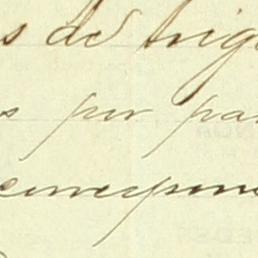 s de trig
s por pa
correspon